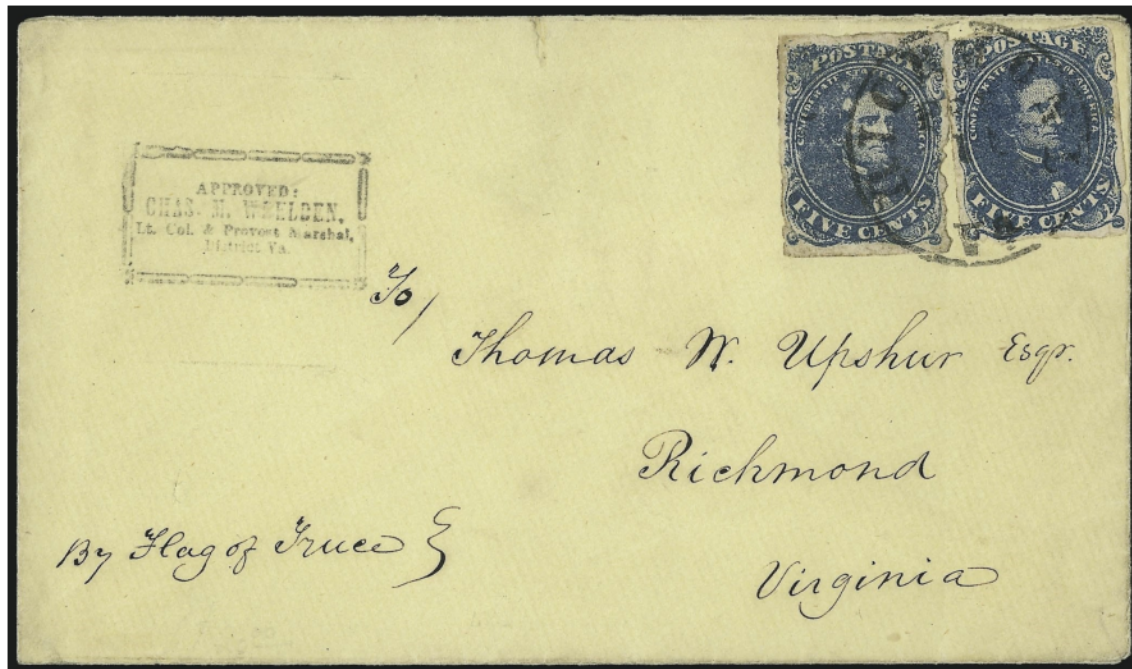 POSTAGE
CONFEDERATE STATES OF AMERICA
FIVE CENTS
POSTAGE
CONFEDERATE STATES OF AMERICA
FIVE CENTS
APPROVED:
CHAS. M. WHELDEN,
Lt. Col. & Provost Marshal,
District Va.
To/
Thomas W. Upshur Esqr.
Richmond
Virginia
By Flag of Truce